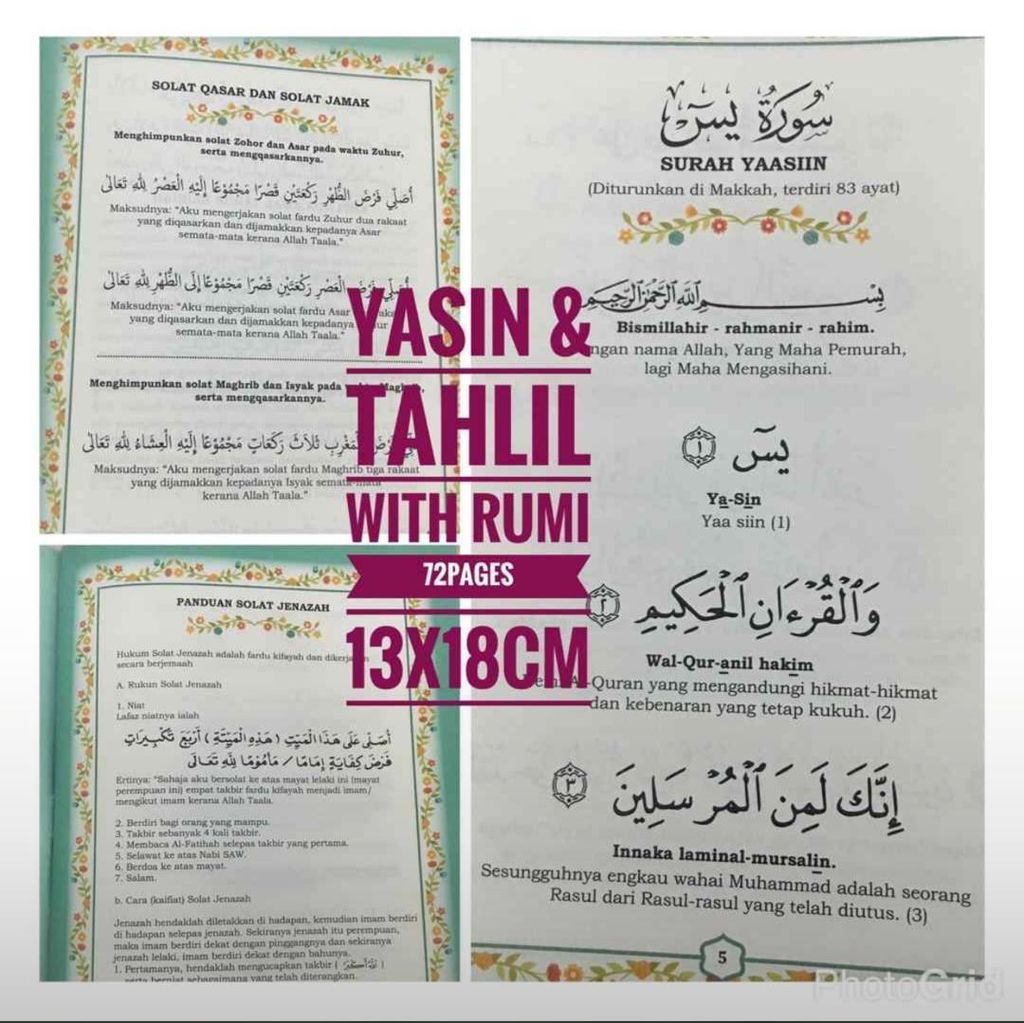 SOLAT QASAR DAN SOLAT JAMAK
Menghimpunkan solat Zohor dan Asar pada waktu Zuhur,
serta mengqasarkannya.
أُصَلِّي فَرْضَ الظُّهْرِ رَكْعَتَيْنِ قَصْرًا مَجْمُوْعًا إِلَيْهِ الْعَصْرُ لِلّٰهِ تَعَالَى
Maksudnya: "Aku mengerjakan solat fardu Zuhur dua rakaat
yang diqasarkan dan dijamakkan kepadanya Asar
semata-mata kerana Allah Taala."
أُصَلِّي فَرْضَ الْعَصْرِ رَكْعَتَيْنِ قَصْرًا مَجْمُوْعًا إِلَى الظُّهْرِ لِلّٰهِ تَعَالَى
Maksudnya: "Aku mengerjakan solat fardu Asar
yang diqasarkan dan dijamakkan kepadanya
semata-mata kerana Allah Taala."
Menghimpunkan solat Maghrib dan Isyak pada
serta mengqasarkannya.
الْمَغْرِبِ ثَلَاثَ رَكَعَاتٍ مَجْمُوْعًا إِلَيْهِ الْعِشَاءُ لِلّٰهِ تَعَالَى
Maksudnya: "Aku mengerjakan solat fardu Maghrib tiga rakaat
yang dijamakkan kepadanya Isyak semata-mata
kerana Allah Taala."
PANDUAN SOLAT JENAZAH
Hukum Solat Jenazah adalah fardu kifayah dan
secara berjemaah
A. Rukun Solat Jenazah
1. Niat
Lafaz niatnya ialah
أُصَلِّى عَلَى هَذَا الْمَيِّتِ (هَذِهِ الْمَيِّتَةِ) أَرْبَعَ تَكْبِيْرَاتٍ
فَرْضَ كِفَايَةٍ إِمَامًا / مَأْمُوْمًا لِلّٰهِ تَعَالَى
Ertinya: "Sahaja aku bersolat ke atas mayat lelaki ini (mayat
perempuan ini) empat takbir fardu kifayah menjadi imam/
mengikut imam kerana Allah Taala.
2. Berdiri bagi orang yang mampu.
3. Takbir sebanyak 4 kali takbir.
4. Membaca Al-Fatihah selepas takbir yang pertama.
5. Selawat ke atas Nabi SAW.
6. Berdoa ke atas mayat.
7. Salam.
b. Cara (kaifiat) Solat Jenazah
Jenazah hendaklah diletakkan di hadapan, kemudian imam berdiri
di hadapan selepas jenazah. Sekiranya jenazah itu perempuan,
maka imam berdiri dekat dengan pinggangnya dan sekiranya
jenazah lelaki, imam berdiri dekat dengan bahunya.
1. Pertamanya, hendaklah mengucapkan takbir (اَللّٰهُ أَكْبَرُ)
serta berniat sebagaimana yang telah diterangkan.
YASIN &
TAHLIL
WITH RUMI
72PAGES
13X18CM
سُورَةُ يسٓ
SURAH YAASIIN
(Diturunkan di Makkah, terdiri 83 ayat)
بِسْمِ اللّٰهِ الرَّحْمٰنِ الرَّحِيمِ
Bismillahir - rahmanir - rahim.
nama Allah, Yang Maha Pemurah,
lagi Maha Mengasihani.
يسٓ ١
Ya-Sin
Yaa siin (1)
وَٱلْقُرْءَانِ ٱلْحَكِيمِ ٢
Wal-Qur-anil hakim
Al-Quran yang mengandungi hikmat-hikmat
dan kebenaran yang tetap kukuh. (2)
إِنَّكَ لَمِنَ ٱلْمُرْسَلِينَ ٣
Innaka laminal-mursalin.
Sesungguhnya engkau wahai Muhammad adalah seorang
Rasul dari Rasul-rasul yang telah diutus. (3)
5
PhotoGrid